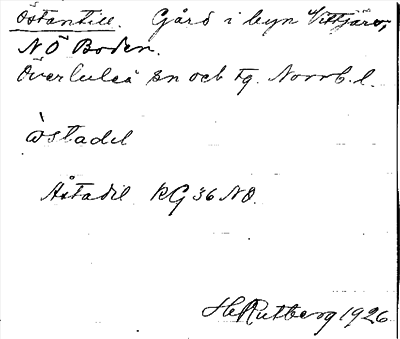 Östantill. Gård i byn Vittjärv,
NÖ Boden.
Överluleå sn och tg. Norrb. l.
östadel
Åstadil RG 36 NO.
H Rutberg 1926